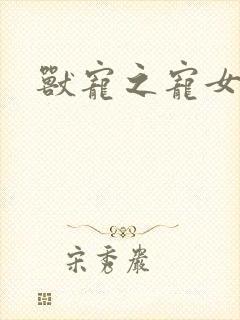 獸寵之寵女
宋秀嚴